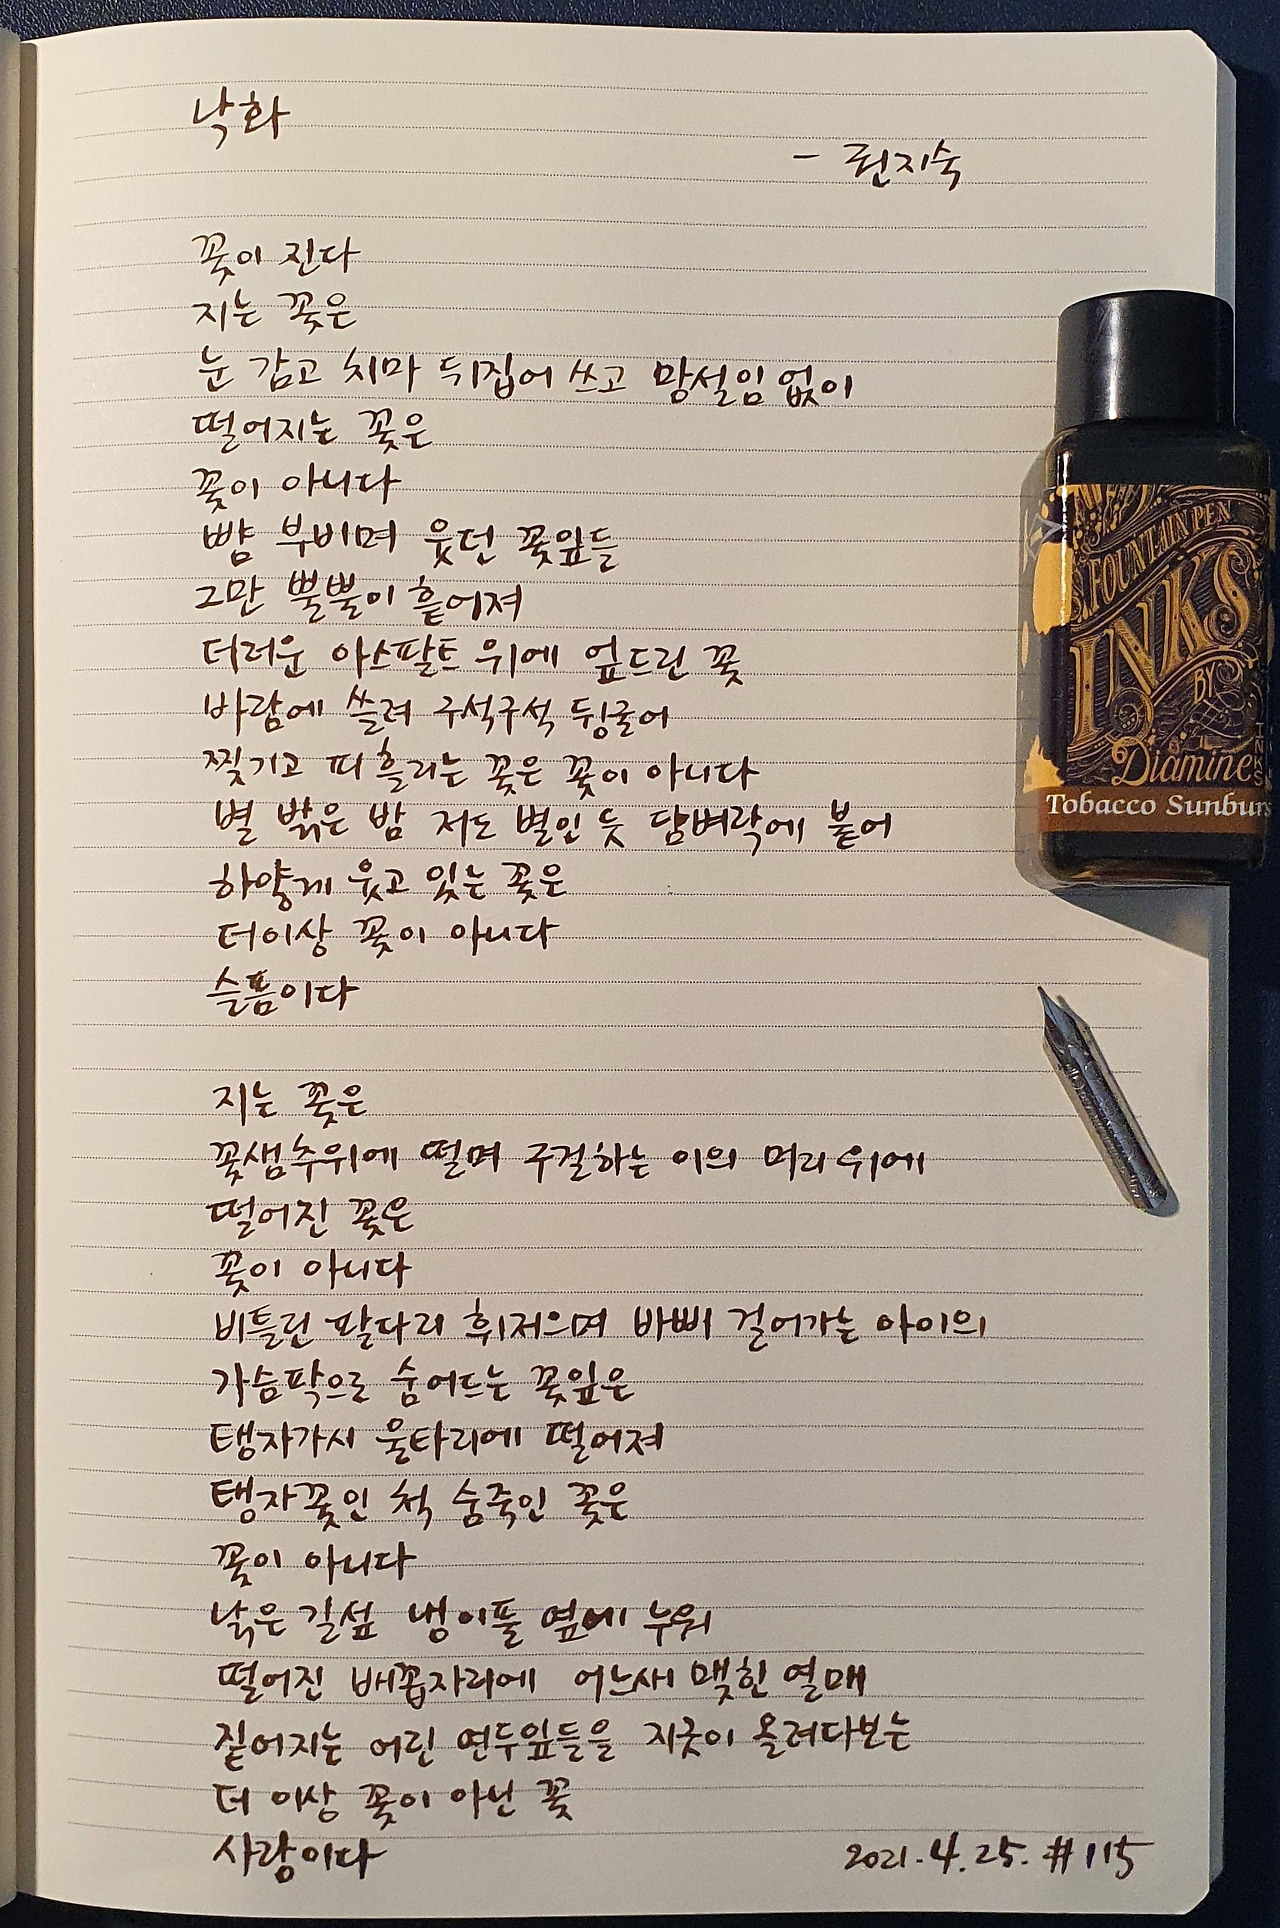 낙화
- 린지숙
꽃이 진다
지는 꽃은
눈 감고 치마 뒤집어 쓰고 망설임 없이
떨어지는 꽃은
꽃이 아니다
뺨 부비며 웃던 꽃잎들
그만 뿔뿔이 흩어져
더러운 아스팔트 위에 엎드린 꽃
바람에 쓸려 구석구석 뒹굴어
찢기고 피 흘리는 꽃은 꽃이 아니다
별 밝은 밤 저도 별인 듯 담벼락에 붙어
하얗게 웃고 있는 꽃은
더이상 꽃이 아니다
슬픔이다
지는 꽃은
꽃샘추위에 떨며 구걸하는 이의 머리 위에
떨어진 꽃은
꽃이 아니다
비틀린 팔다리 휘저으며 바삐 걸어가는 아이의
가슴팍으로 숨어드는 꽃잎은
탱자가시 울타리에 떨어져
탱자꽃인 척 숨죽인 꽃은
꽃이 아니다
낡은 길섶 냉이풀 옆에 누워
떨어진 배꼽자리에 어느새 맺힌 열매
짙어지는 어린 연두잎들을 지긋이 올려다보는
더 이상 꽃이 아닌 꽃
사랑이다
2021.4.25. #115
FOUNTAIN PEN
INKS
BY
Diamine
Tobacco Sunburs